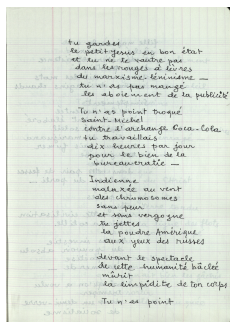 tu gardes
le petit Jesus en bon état
et tu ne te vautre pas
dans les rouges à lèvres
du marxisme-léninisme —
tu n'as pas mangé
les aboiement de la publicité
Tu n'as point troqué
Saint-Michel
contre l'archange Coca-Cola
tu travaillais
dix heures par jour
pour le bien de la
bureaucratie —
Indienne
malaxée au vent
des chromosomes
sans peur
et sans vergogne
tu jettes
la poudre Amérique
aux yeux des russes
devant le spectacle
de cette humanité bâclée
mûrit
la limpidité de ton corps
Tu n'as point